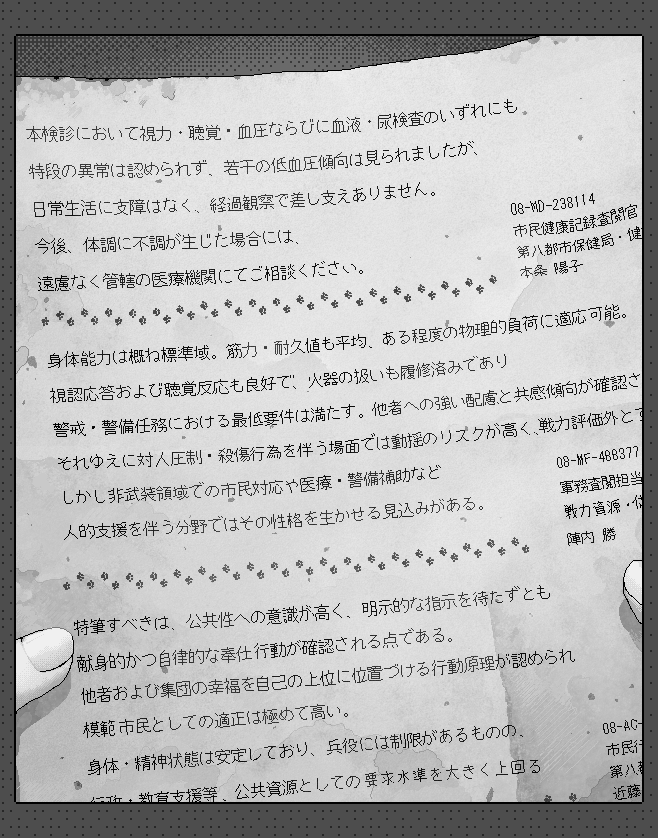 本検診において視力・聴覚・血圧ならびに血液・尿検査のいずれにも
特段の異常は認められず、若干の低血圧傾向は見られましたが、
日常生活に支障はなく、経過観察で差し支えありません。
今後、体調に不調が生じた場合には、
遠慮なく管轄の医療機関にてご相談ください。
08-MD-238114
市民健康記録査閲官
第八都市保健局・健
本条 陽子
身体能力は概ね標準域。筋力・耐久値も平均、ある程度の物理的負荷に適応可能。
視認応答および聴覚反応も良好で、火器の扱いも履修済みであり
警戒・警備任務における最低要件は満たす。他者への強い配慮と共感傾向が確認さ
それゆえに対人圧制・殺傷行為を伴う場面では動揺のリスクが高く、戦力評価外とす
しかし非武装領域での市民対応や医療・警備補助など
人的支援を伴う分野ではその性格を生かせる見込みがある。
08-MF-488377
軍務査閲担当
戦力資源・
陣内 勝
特筆すべきは、公共性への意識が高く、明示的な指示を待たずとも
献身的かつ自律的な奉仕行動が確認される点である。
他者および集団の幸福を自己の上位に位置づける行動原理が認められ
模範市民としての適正は極めて高い。
身体・精神状態は安定しており、兵役には制限があるものの、
行政・教育支援等、公共資源としての要求水準を大きく上回る
08-AC-
市民行
第八都
近藤